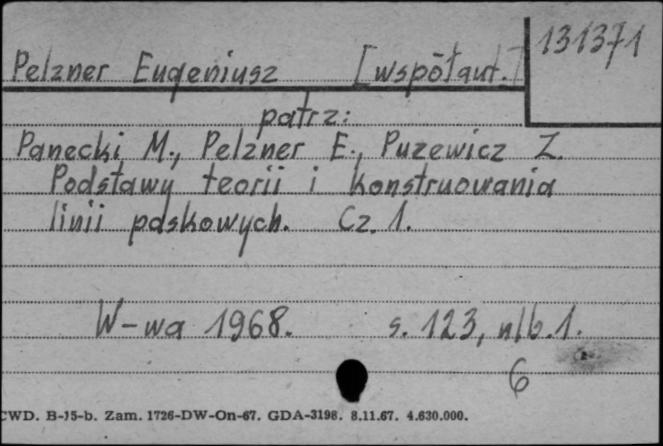 131371
Pelzner Eugeniusz [współaut.]
patrz:
Panecki M., Pelzner E., Puzewicz Z.
Podstawy teorii i konstruowania
linii paskowych. Cz. 1.
W-wa 1968. s. 123, nlb. 1.
6
CWD. B-15-b. Zam. 1726-DW-On-67. GDA-3198. 8.11.67. 4.630.000.